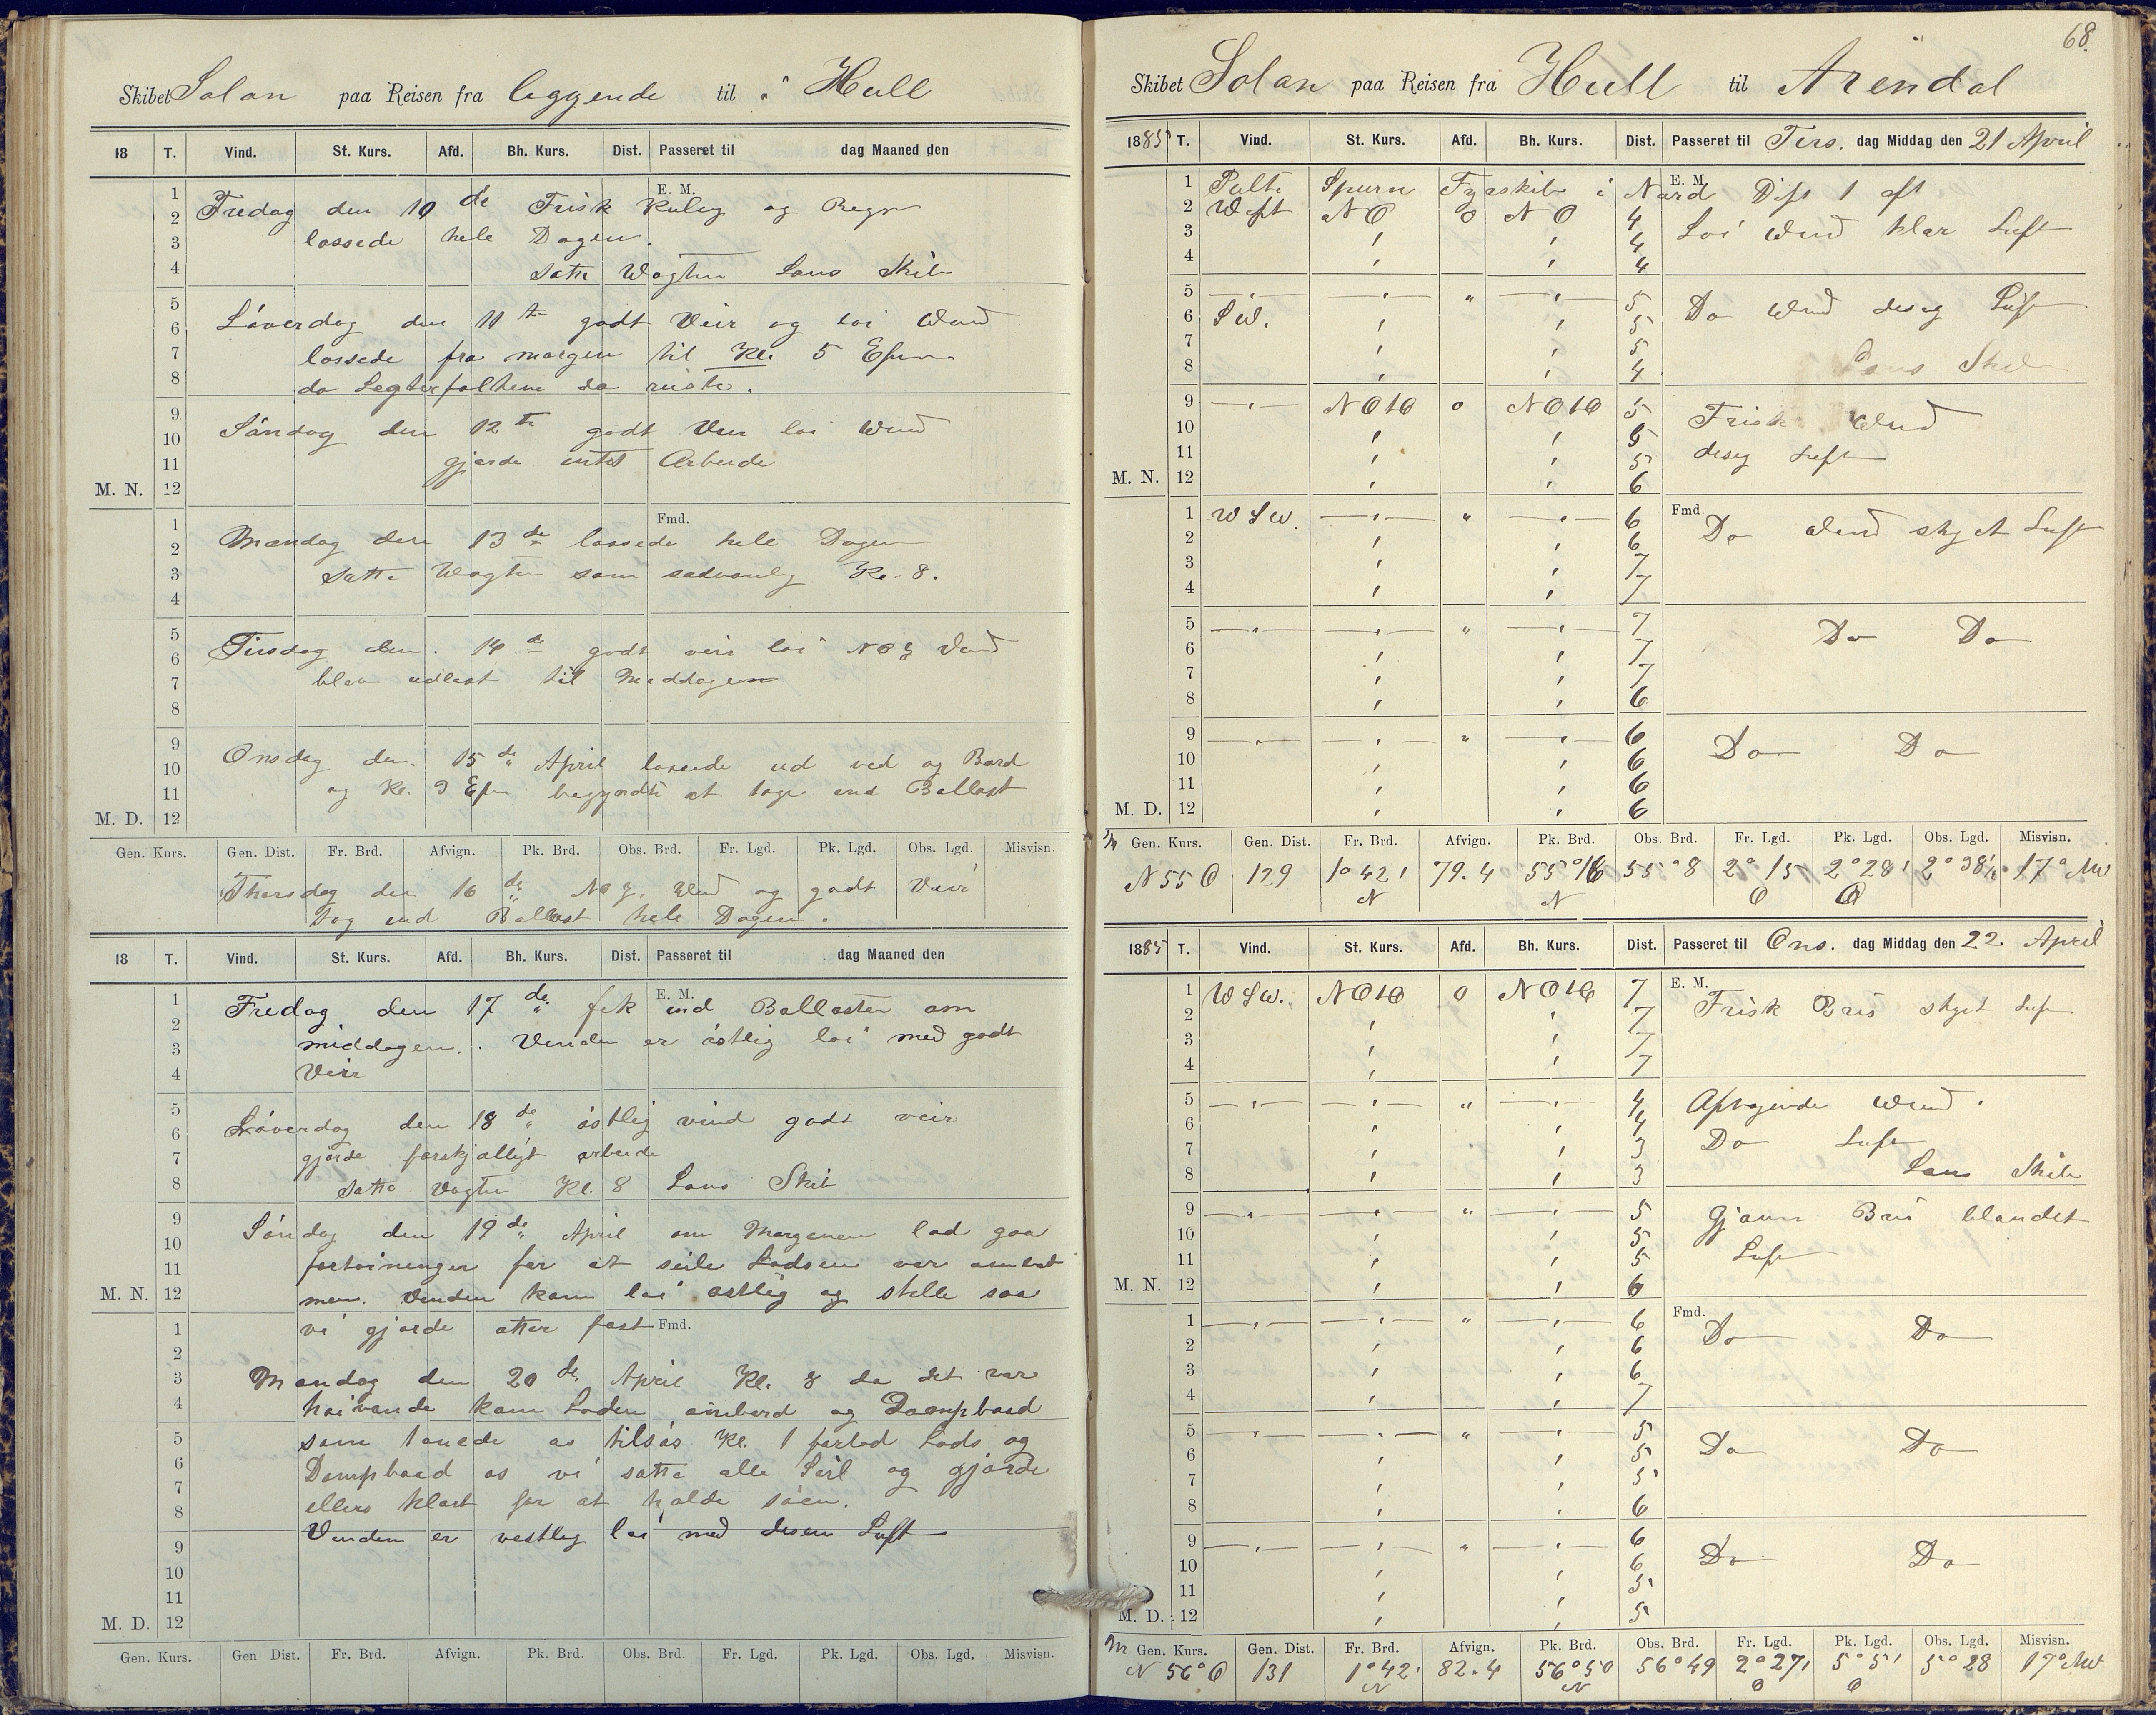 Skibet Solon paa Reisen fra leggende til i Hull
18 T. Vind. St. Kurs. Afd. Bh. Kurs. Dist. Passeret til dag Maaned den
E. M.
1 Fredag den 10 de Frisk Kuling og Regn
2 lossede hele Dagen.
3
4 satte Wagten Lens Skib
5 Löverdag den 11 te godt Veir og loi Wend
6
7 lossede fra morgen til Kl. 5 Efm
8 da Legterfolkene da reiste.
9 Söndag den 12 te godt Veir loi Wend
10
11 gjorde intet Arbeide
M. N. 12
Fmd.
1 Mandag den 13 de lossede hele Dagen
2
3 satte Wagten som sedvanlig Kl. 8.
4
5 Tirsdag den 14 de godt veir loi NO g Vend
6
7 blev udlost til Meddagen
8
9 Onsdag den 15 de April lossede ud ved og Bord
10
11 og Kl. 3 Efm begyndte at tage ind Ballast
M. D. 12
Gen. Kurs. Gen. Dist. Fr. Brd. Afvign. Pk. Brd. Obs. Brd. Fr. Lgd. Pk. Lgd. Obs. Lgd. Misvisn.
Thorsdag den 16 de NO g. Wend og godt Veir
Tog ind Ballast hele Dagen.
18 T. Vind. St. Kurs. Afd. Bh. Kurs. Dist. Passeret til dag Maaned den
E. M.
1 Fredag den 17 de fik ind Ballasten om
2
3 middagen. Venden er östlig loi med godt
4 Veir
5 Löverdag den 18 de östlig vind godt veir
6
7 gjorde forskjelligt arbeide
8 satte Vagten Kl. 8 Lens Skib
9 Söndag den 19 de April om Morgenen lod gaa
10
11 fortoininger for at seile Lodsen var ombord
M. N. 12 men Venden kom loi östlig og stille saa
1 vi gjorde atter fast Fmd.
2
3 Mandag den 20 de April Kl. 8 da det var
4 höivande kom Loden ombord og Dampbaad
5 som touede os tilsös Kl. 1 forlod Lods og
6 Dampbaad os vi satte alle Seil og gjorde
7
8 ellers klart for at holde söen.
Venden er vestlig loi med desen Luft
9
10
11
M. D. 12
Gen. Kurs. Gen Dist. Fr. Brd. Afvign. Pk. Brd. Obs. Brd. Fr. Lgd. Pk. Lgd. Obs. Lgd. Misvisn.
68.
Skibet Solon paa Reisen fra Hull til Arendal
1885 T. Vind. St. Kurs. Afd. Bh. Kurs. Dist. Passeret til Tirs. dag Middag den 21 April
E. M.
1 Spurn Fyrskib i Nord Dist 1
2 West NO 0 NO 4 Loi Wend klar Luft
3 " " 4
4 " " 4
5 — " — — " — " — " — 5 Do Wend deseg Luft
6 SW. " " 5
7 " " 5
8 " " 4 Lens Skib
9 — " — NOtO 0 NOtO 5 Frisk Wend
10 " " 5
11 " " 5 deseg Luft
M. N. 12 " " 6
Fmd.
1 WSW. — " — " — " — 6 Do Wend skyet Luft
2 " " 6
3 " " 7
4 " " 7
5 — " — — " — " — " — 7 Do Do
6 " " 7
7 " " 7
8 " " 6
9 — " — — " — " — " — 6 Do Do
10 " " 6
11 " " 6
M. D. 12 " " 6
Gen. Kurs. Gen. Dist. Fr. Brd. Afvign. Pk. Brd. Obs. Brd. Fr. Lgd. Pk. Lgd. Obs. Lgd. Misvisn.
N 55 O 129 1° 42' N 79.4 55° 16 N 55° 8 2° 15 O 2° 28' O 2° 38' 17° NW
1885 T. Vind. St. Kurs. Afd. Bh. Kurs. Dist. Passeret til Ons. dag Middag den 22. April
E. M.
1 WSW. NOtO 0 NOtO 7 Frisk Bris skyet Luft
2 " " 7
3 " " 7
4 " " 7
5 — " — — " — " — " — 4 Aftagende Wend.
6 " " 4
7 " " 3 Do Luft
8 " " 3 Lens Skib
9 — " — — " — " — " — 5 Gjavn Bris blandet
10 " " 5
11 " " 5 Luft
M. N. 12 " " 6
Fmd.
1 — " — — " — " — " — 6 Do Do
2 " " 6
3 " " 6
4 " " 7
5 — " — — " — " — " — 5 Do Do
6 " " 5
7 " " 5
8 " " 6
9 — " — — " — " — " — 6 Do Do
10 " " 6
11 " " 5
M. D. 12 " " 5
Gen. Kurs. Gen. Dist. Fr. Brd. Afvign. Pk. Brd. Obs. Brd. Fr. Lgd. Pk. Lgd. Obs. Lgd. Misvisn.
N 56° O 131 1° 42' N 82.4 56° 50 N 56° 49 2° 27' O 5° 5' O 5° 28 17° NW